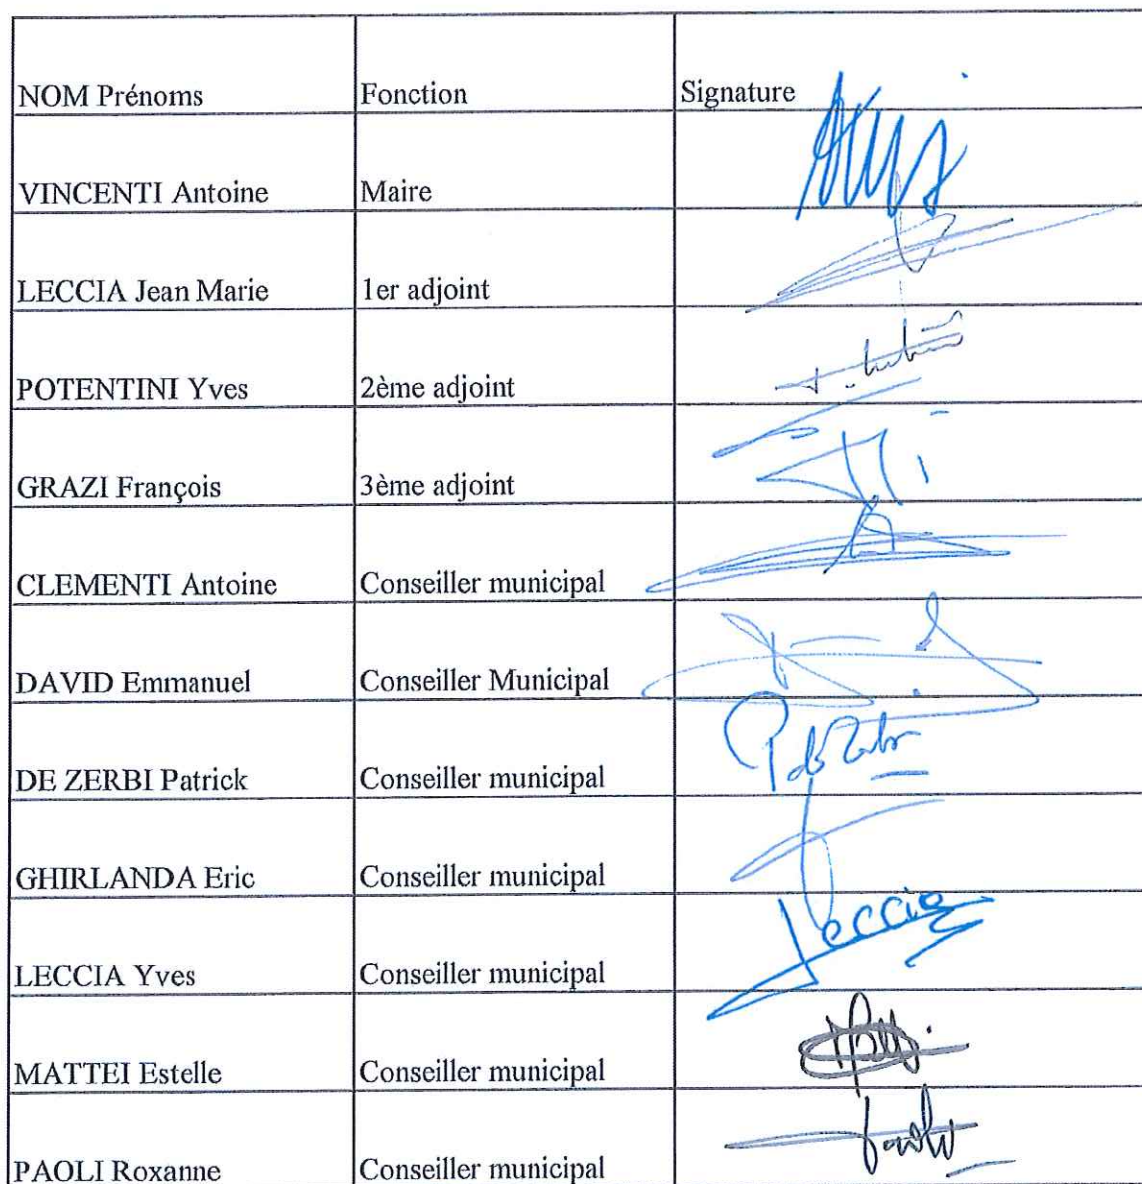 NOM Prénoms Fonction Signature
VINCENTI Antoine Maire
LECCIA Jean Marie 1er adjoint
POTENTINI Yves 2ème adjoint
GRAZI François 3ème adjoint
CLEMENTI Antoine Conseiller municipal
DAVID Emmanuel Conseiller Municipal
DE ZERBI Patrick Conseiller municipal P de Zerbi
GHIRLANDA Eric Conseiller municipal
LECCIA Yves Conseiller municipal Leccia
MATTEI Estelle Conseiller municipal
PAOLI Roxanne Conseiller municipal Paoli